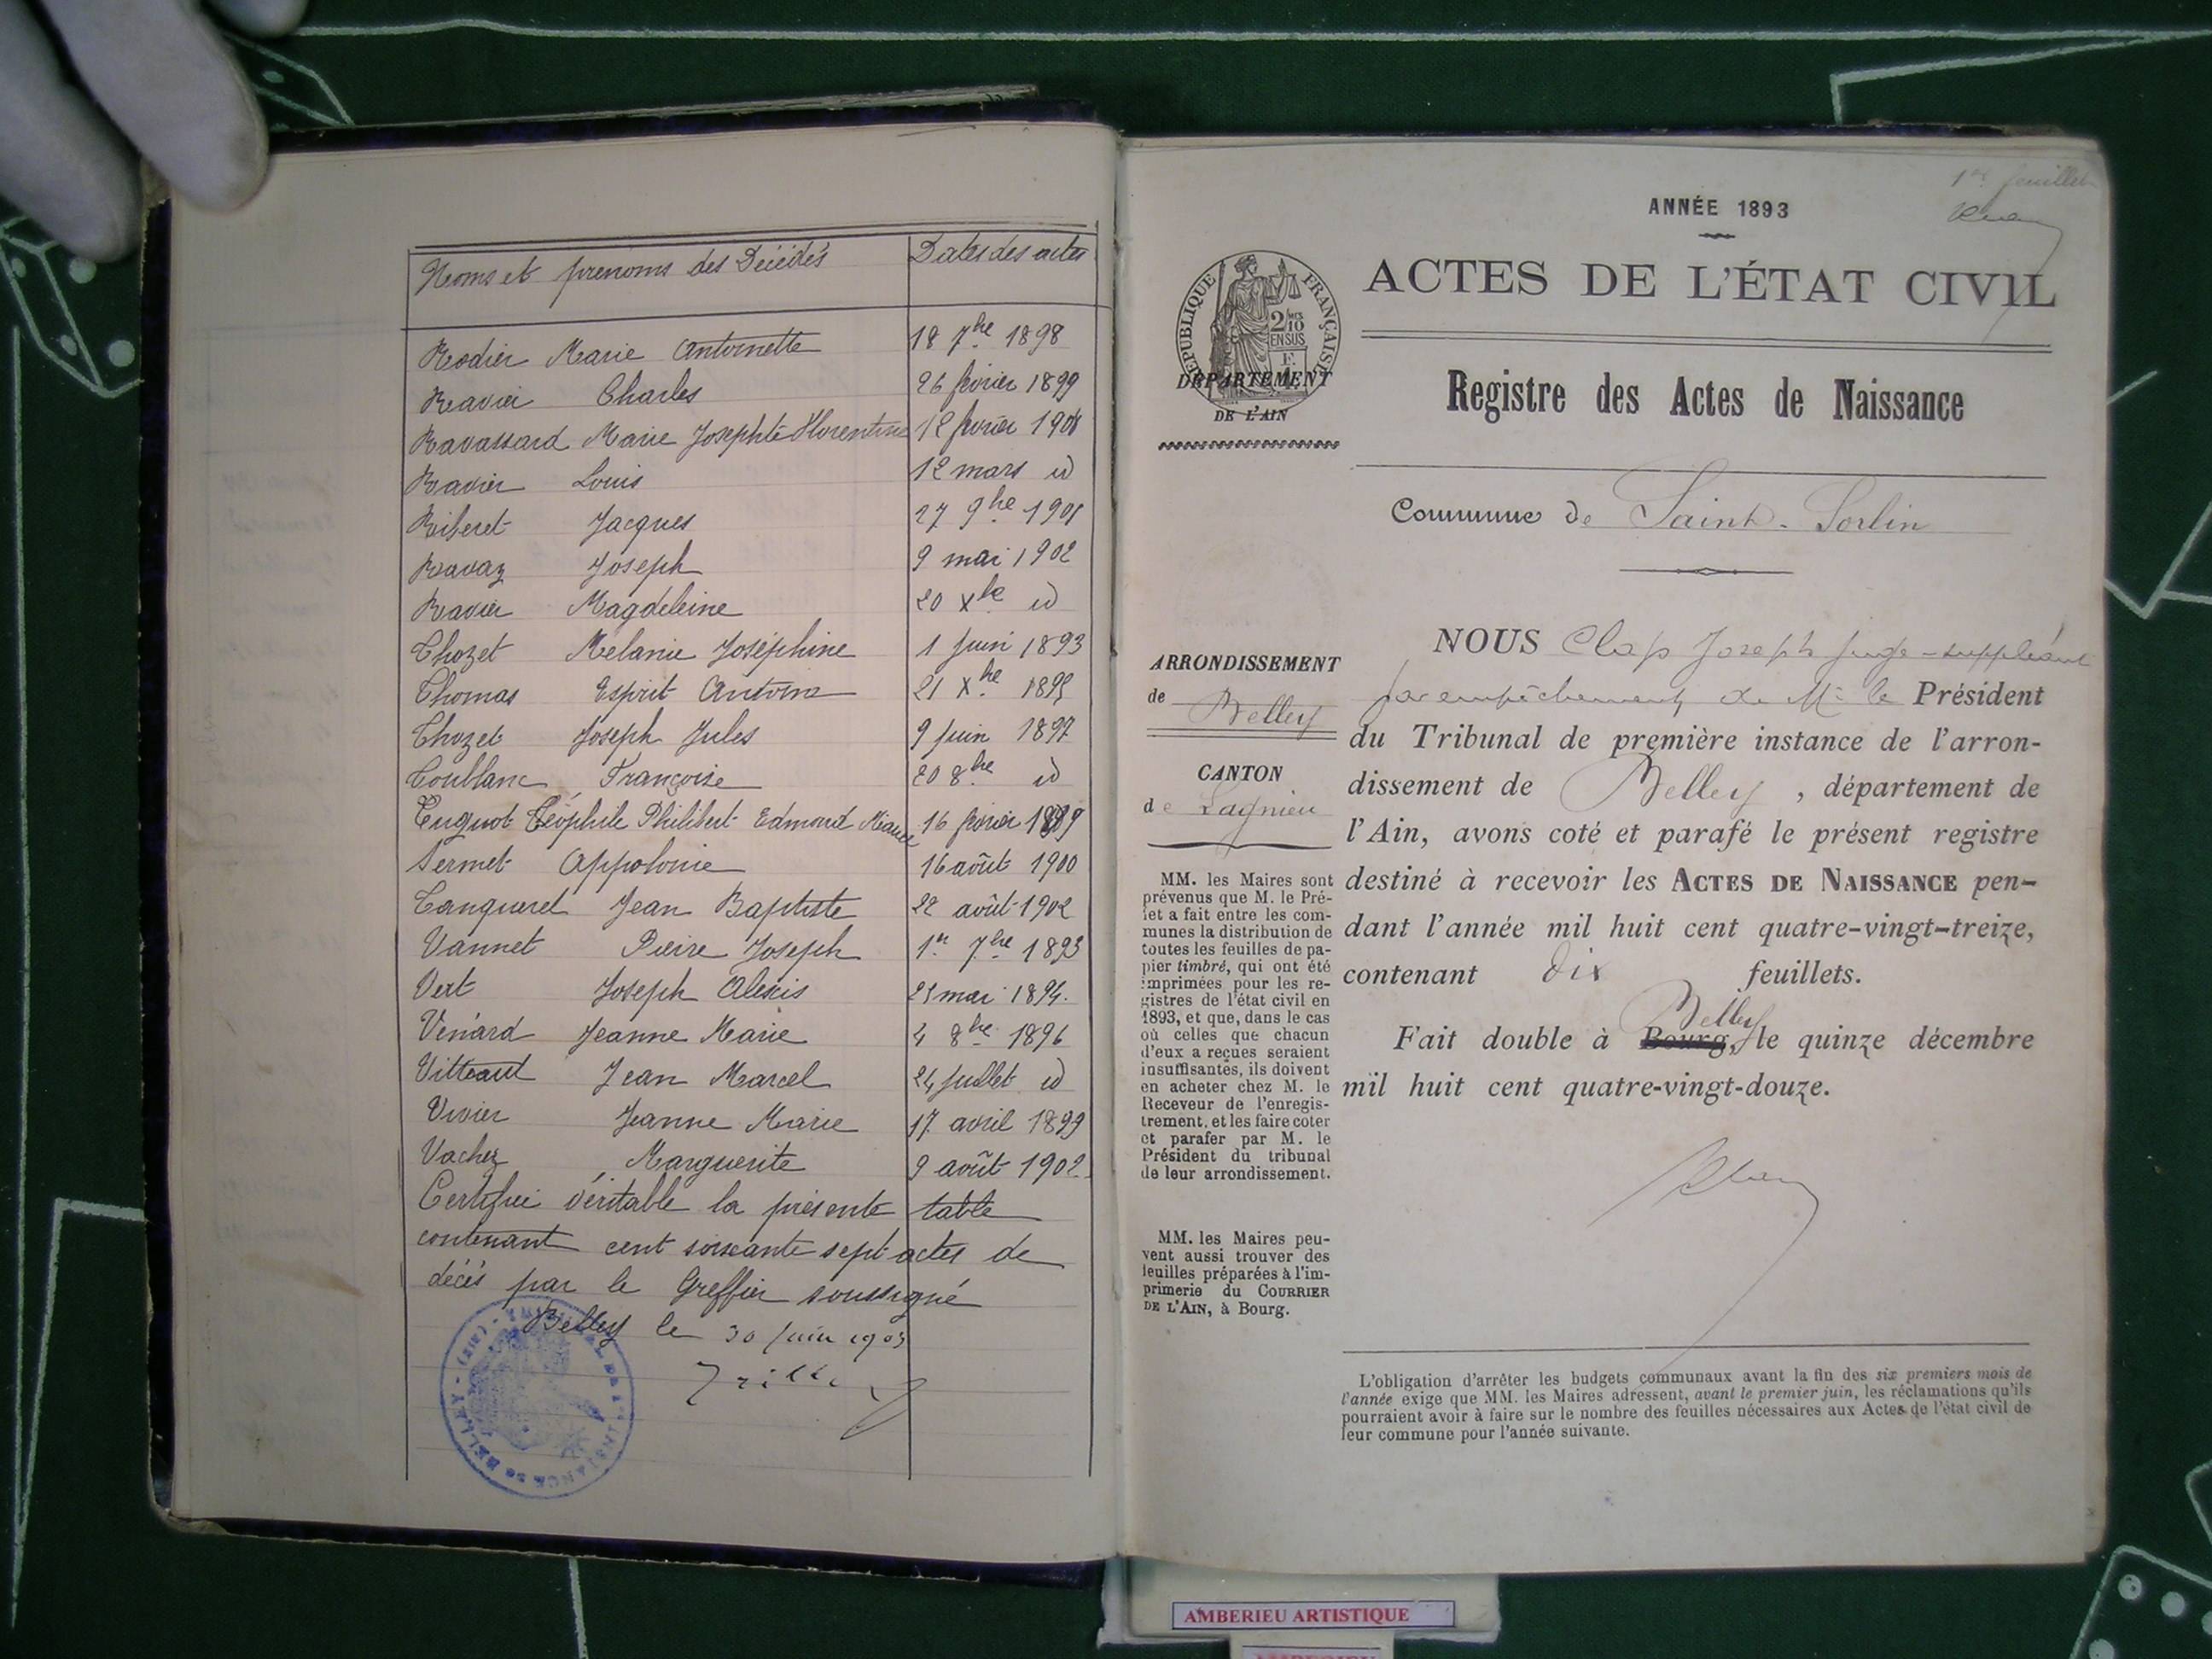 Noms et prénoms des Décédés
Dates des actes
Rodier Marie Antoinette 18 7bre 1898
Ravier Charles 26 février 1899
Ravassard Marie Josephte Florentine 12 février 1901
Ravier Louis 12 mars id
Riberet Jacques 27 9bre 1901
Ravaz Joseph 9 mai 1902
Ravier Magdeleine 20 Xbre id
Thozet Mélanie Joséphine 1 Juin 1893
Thomas Esprit Antoine 21 Xbre 1895
Thozet Joseph Jules 9 Juin 1897
Toublanc Françoise 20 8bre id
Tuguot Téophile Philibert Edmond 16 février 1899
Sermet Appolonie 16 août 1900
Tanqueret Jean Baptiste 22 août 1902
Vannet Pierre Joseph 1er 7bre 1893
Vert Joseph Alexis mai 1894.
Venard Jeanne Marie 4 8bre 1896
Vitteaut Jean Marcel 24 Juillet id
Vivier Jeanne Marie 17 avril 1899
Vachez Marguerite 9 août 1902
Certifié véritable la présente table
contenant cent soixante sept actes de
décès par le Greffier soussigné
Belley le 30 Juin 1903
TRIBUNAL DE 1re INSTANCE DE BELLEY (AIN)
1er feuillet
ANNÉE 1893
ACTES DE L'ÉTAT CIVIL
RÉPUBLIQUE FRANÇAISE
2/10
EN SUS
DÉPARTEMENT
DE L'AIN
Registre des Actes de Naissance
Commune de Saint-Sorlin
ARRONDISSEMENT
de Belley
CANTON
de Lagnieu
MM. les Maires sont
prévenus que M. le Pré-
fet a fait entre les com-
munes la distribution de
toutes les feuilles de pa-
pier timbré, qui ont été
imprimées pour les re-
gistres de l'état civil en
1893, et que, dans le cas
où celles que chacun
d'eux a reçues seraient
insuffisantes, ils doivent
en acheter chez M. le
Receveur de l'enregis-
trement, et les faire coter
et parafer par M. le
Président du tribunal
de leur arrondissement.
MM. les Maires peu-
vent aussi trouver des
feuilles préparées à l'im-
primerie du COURRIER
DE L'AIN, à Bourg.
NOUS Clap Joseph juge-suppléant
par empêchement de Mr le Président
du Tribunal de première instance de l'arron-
dissement de Belley, département de
l'Ain, avons coté et parafé le présent registre
destiné à recevoir les ACTES DE NAISSANCE pen-
dant l'année mil huit cent quatre-vingt-treize,
contenant dix feuillets.
Belley
Fait double à Bourg, le quinze décembre
mil huit cent quatre-vingt-douze.
L'obligation d'arrêter les budgets communaux avant la fin des six premiers mois de
l'année exige que MM. les Maires adressent, avant le premier juin, les réclamations qu'ils
pourraient avoir à faire sur le nombre des feuilles nécessaires aux Actes de l'état civil de
leur commune pour l'année suivante.
AMBERIEU ARTISTIQUE
AMBERIEU